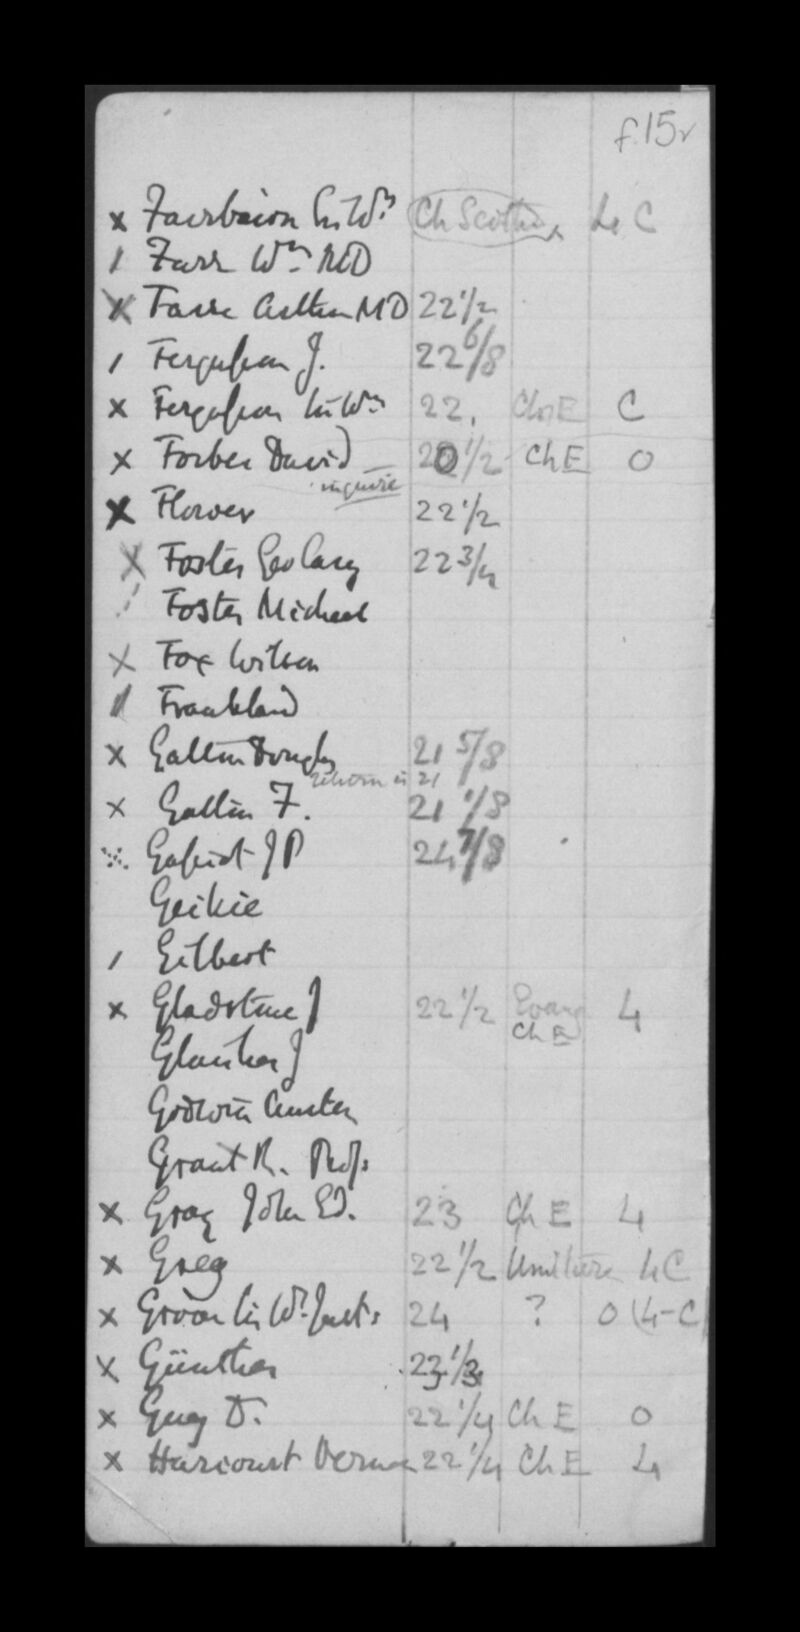 f.15r
x Fairbairn Sir Wm Ch Scotland 4 C
/ Farr Wm MD
x Farre Arthur MD 22 1/2
/ Fergusson J. 22 6/8
x Fergusson Sir Wm 22. Ch E C
x Forbes David 20 1/2 Ch E 0
inquire
x Flower 22 1/2
x Foster Geo Carey 22 3/4
/ Foster Michael
x Fox Wilson
/ Frankland
x Galton Douglas 21 5/8
return is 21
x Galton F. 21 1/8
x Gassiot J P 24 7/8
Geikie
/ Gilbert
x Gladstone J 22 1/2 Evang 4
Ch E
Glaisher J
Godwin Austen
Grant R. Prof.
x Gray John Ed. 23 Ch E 4
x Greg 22 1/2 4 C
x Grove Sir Wm Just. 24 ? 0 (4-C)
x Günther
x Guy D. 22 1/4 Ch E 0
x Harcourt Vernon 22 1/4 Ch E 4